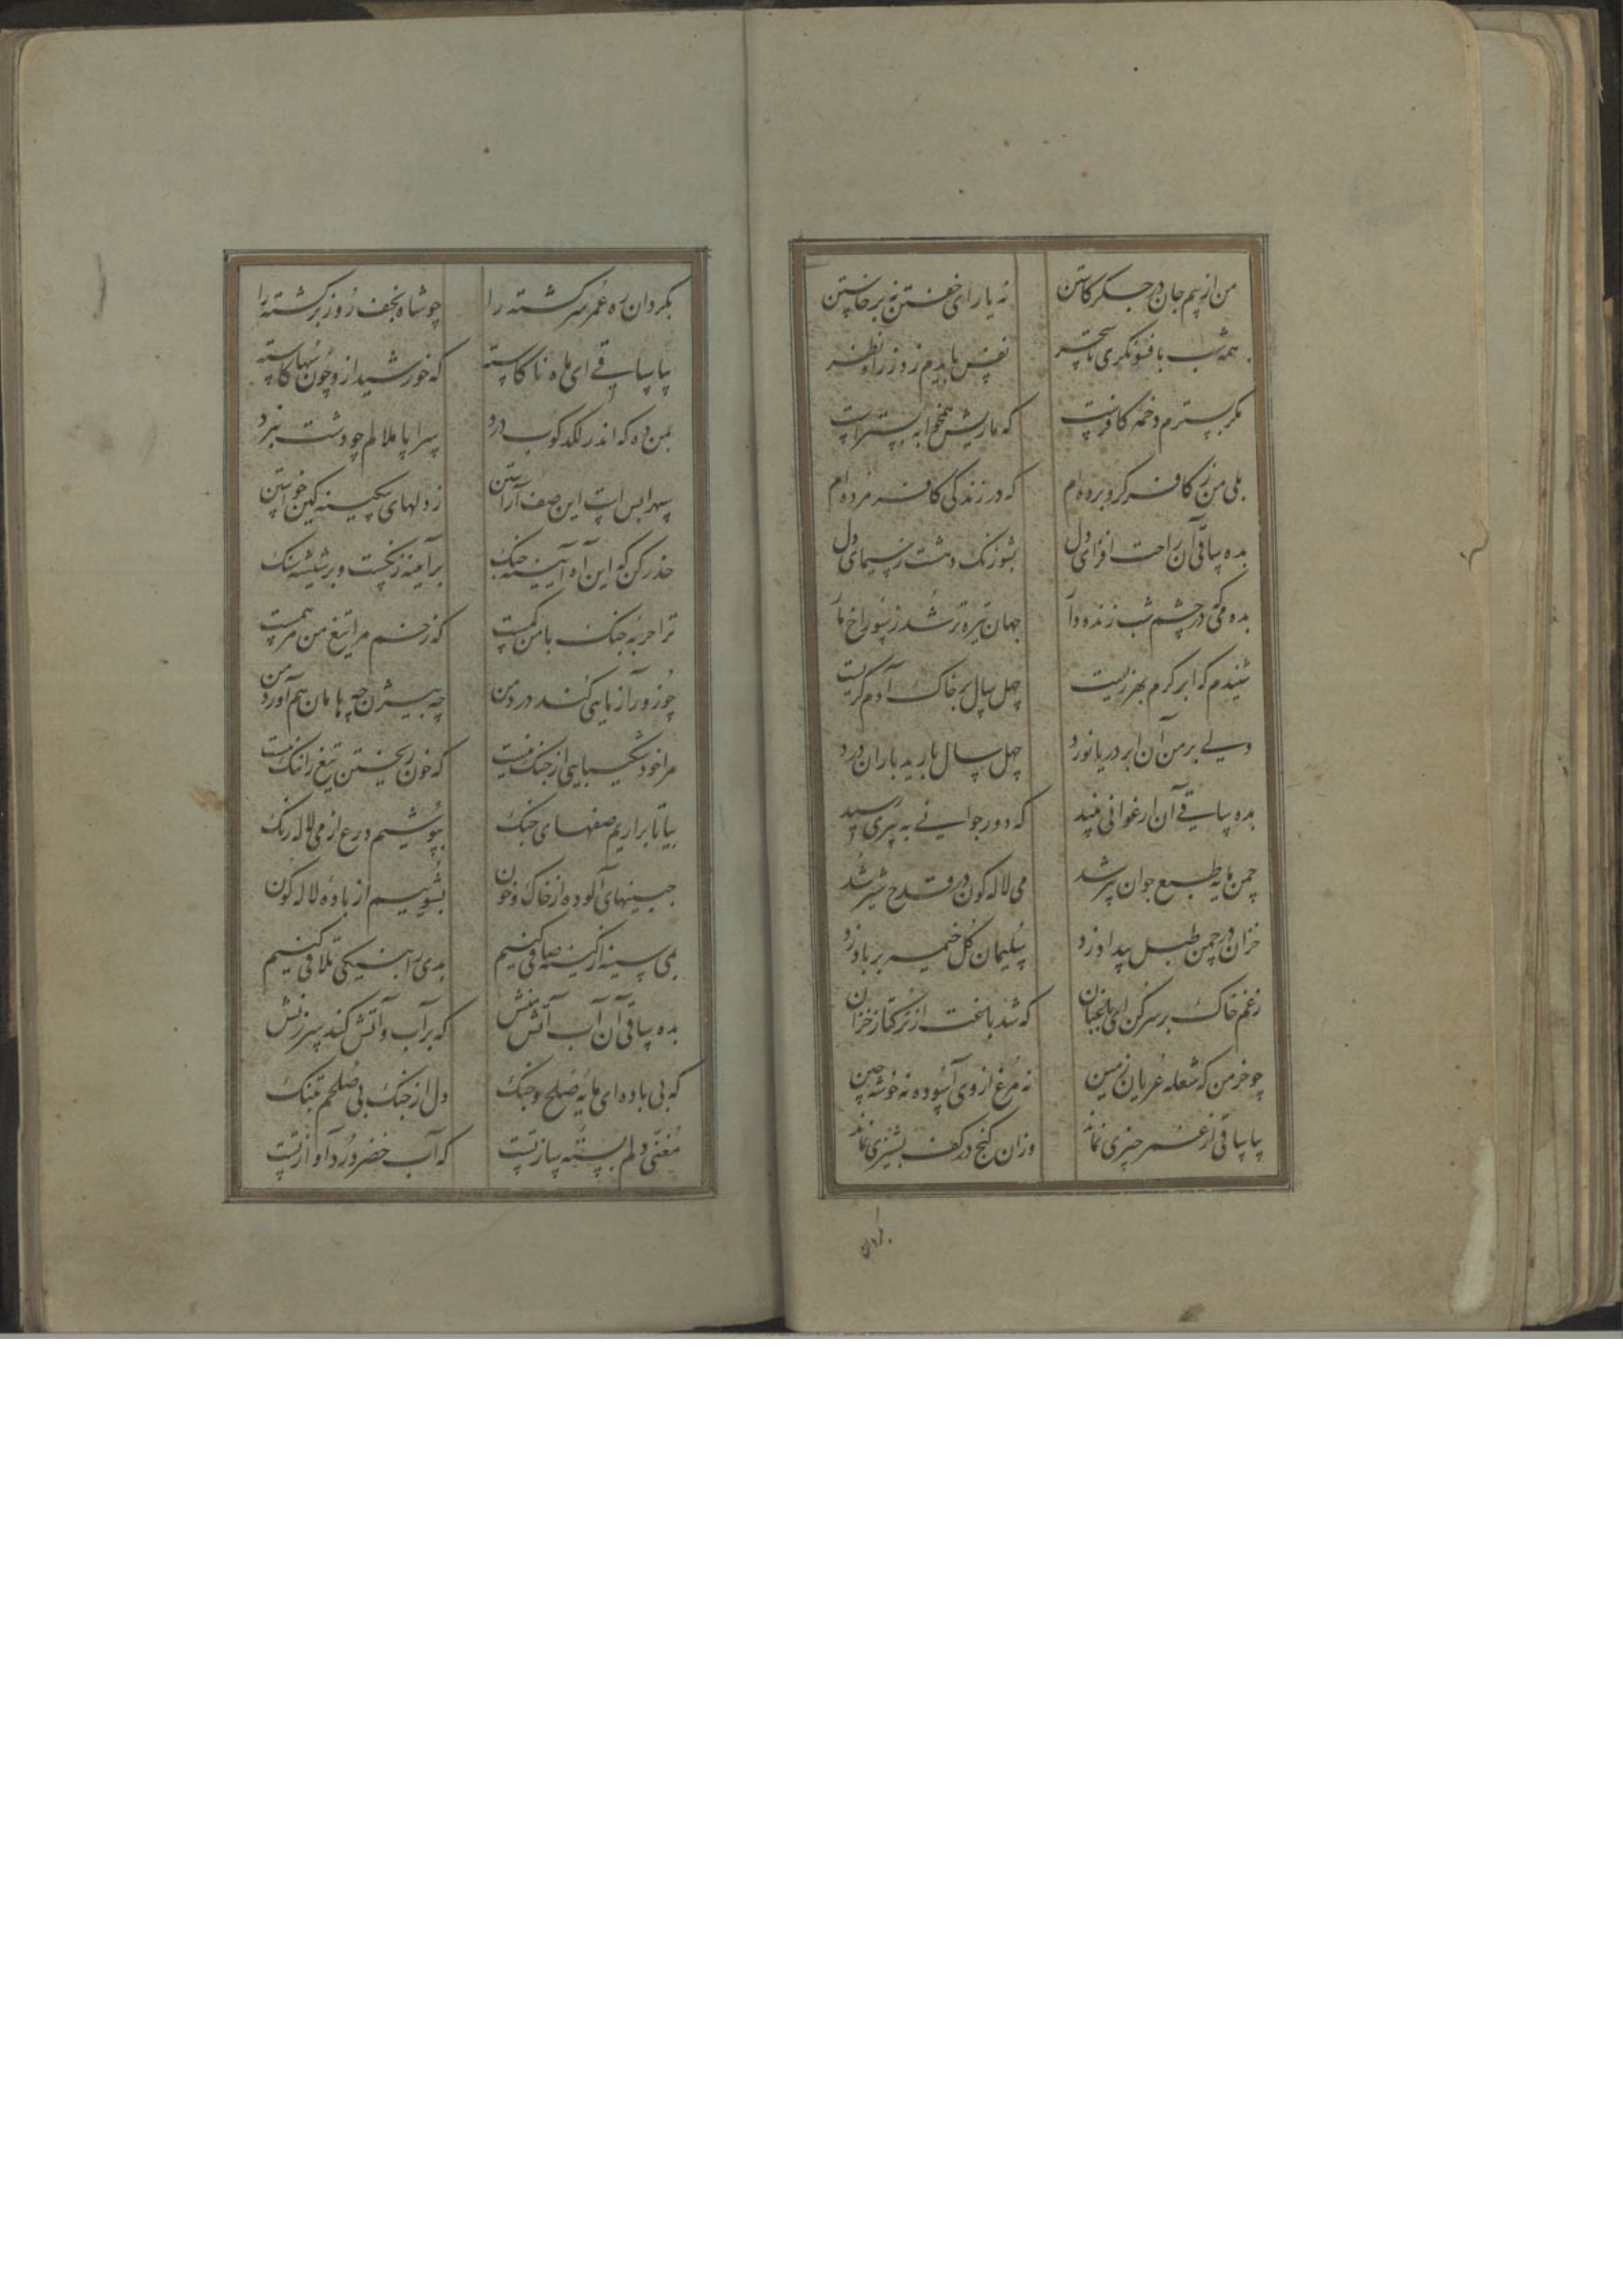 من از بیم جان در جگر کاستن نه یارای خفتن نه برخاستن
همه شب بافسونگری تا سحر نفس با بدم زور زاو نظر
مگر بسترم دخمه کافرست که ماریش همخوابه بسترست
بلی من ز کافر گرو برده ام که در زندگی کافر مرده ام
بده ساقی آن راحت افزای دل بشو زنگ وحشت ز سیمای دل
بده می که در چشم شب زنده دار جهان تیره تر شد ز سوراخ مار
شنیدم که ابر کرم بهر زیست چهل سال بر خاک آدم گریست
ولی بر من آن ابر دریا نورد چهل سال بارید باران درد
بده ساقی آن ارغوانی نبید که دور جوانی به پیری رسید
چمن مایه طبع جوان پیر شد می لاله کون در قدح شیر شد
خزان در چمن طبل بیداد زد سلیمان گل خیمه بر باد زد
ز غم خاک بر سر کن ای باغبان که شد باغت از ترکتاز خزان
چو خرمن که شعله عریان زمین نه مرغ از وی آسوده نه خوشه چین
بیا ساقی از عمر چیزی نماند وزان گنج در کف پشیزی نماند
بگردان
بگردان ره عمر سرگشته را چو شاه نجف روز برگشته را
بیا ساقی ای ماه ناکاسته که خورشید ازو چون سها کاسته
بمن ده که اندر لگدکوب درد سراپا ملالم چو دشت نبرد
سپهرا بس است این صف آراستن ز دلهای بیکینه کین خواستن
حذر کن که این آه آیینه جنگ بر آیینه زنگست و بر شیشه سنگ
ترا حربه جنگ با من کمست که زخم مرا تیغ من مرهمست
چو زورآزمایی کند درد من چه بیژن چه هامان هم آورد من
مرا خود شکیبایی از جنگ نیست که خون ریختن تیغ را ننگ نیست
بیا تا برآریم صفهای جنگ بپوشیم درع از می لاله رنگ
جبینهای آلوده از خاک و خون بشوییم از باده لاله کون
بمی سینه از کینه صافی کنیم بدی را بنیکی تلافی کنیم
بده ساقی آن آب آتش منش که بر آب و آتش کند سرزنش
که بی باده ای مایه صلح و جنگ دل از جنگ بی صلحم بتنگ
مغنی دلم بسته ساز تست که آب خضر ورد آواز تست